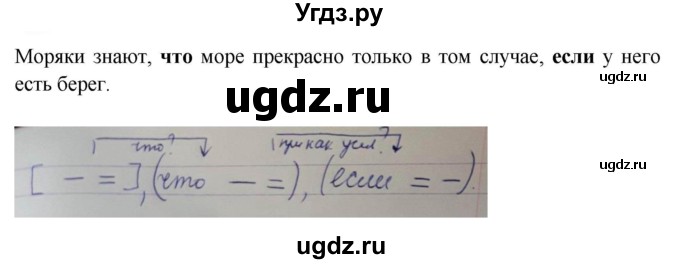 Угдз.ру
Моряки знают, что море прекрасно только в том случае, если у него
есть берег.
ugdz.ru
ugdz.ru
ugdz.ru
что? при как. усл.?
[ — = ], (что — =), (если = —).
ugdz.ru